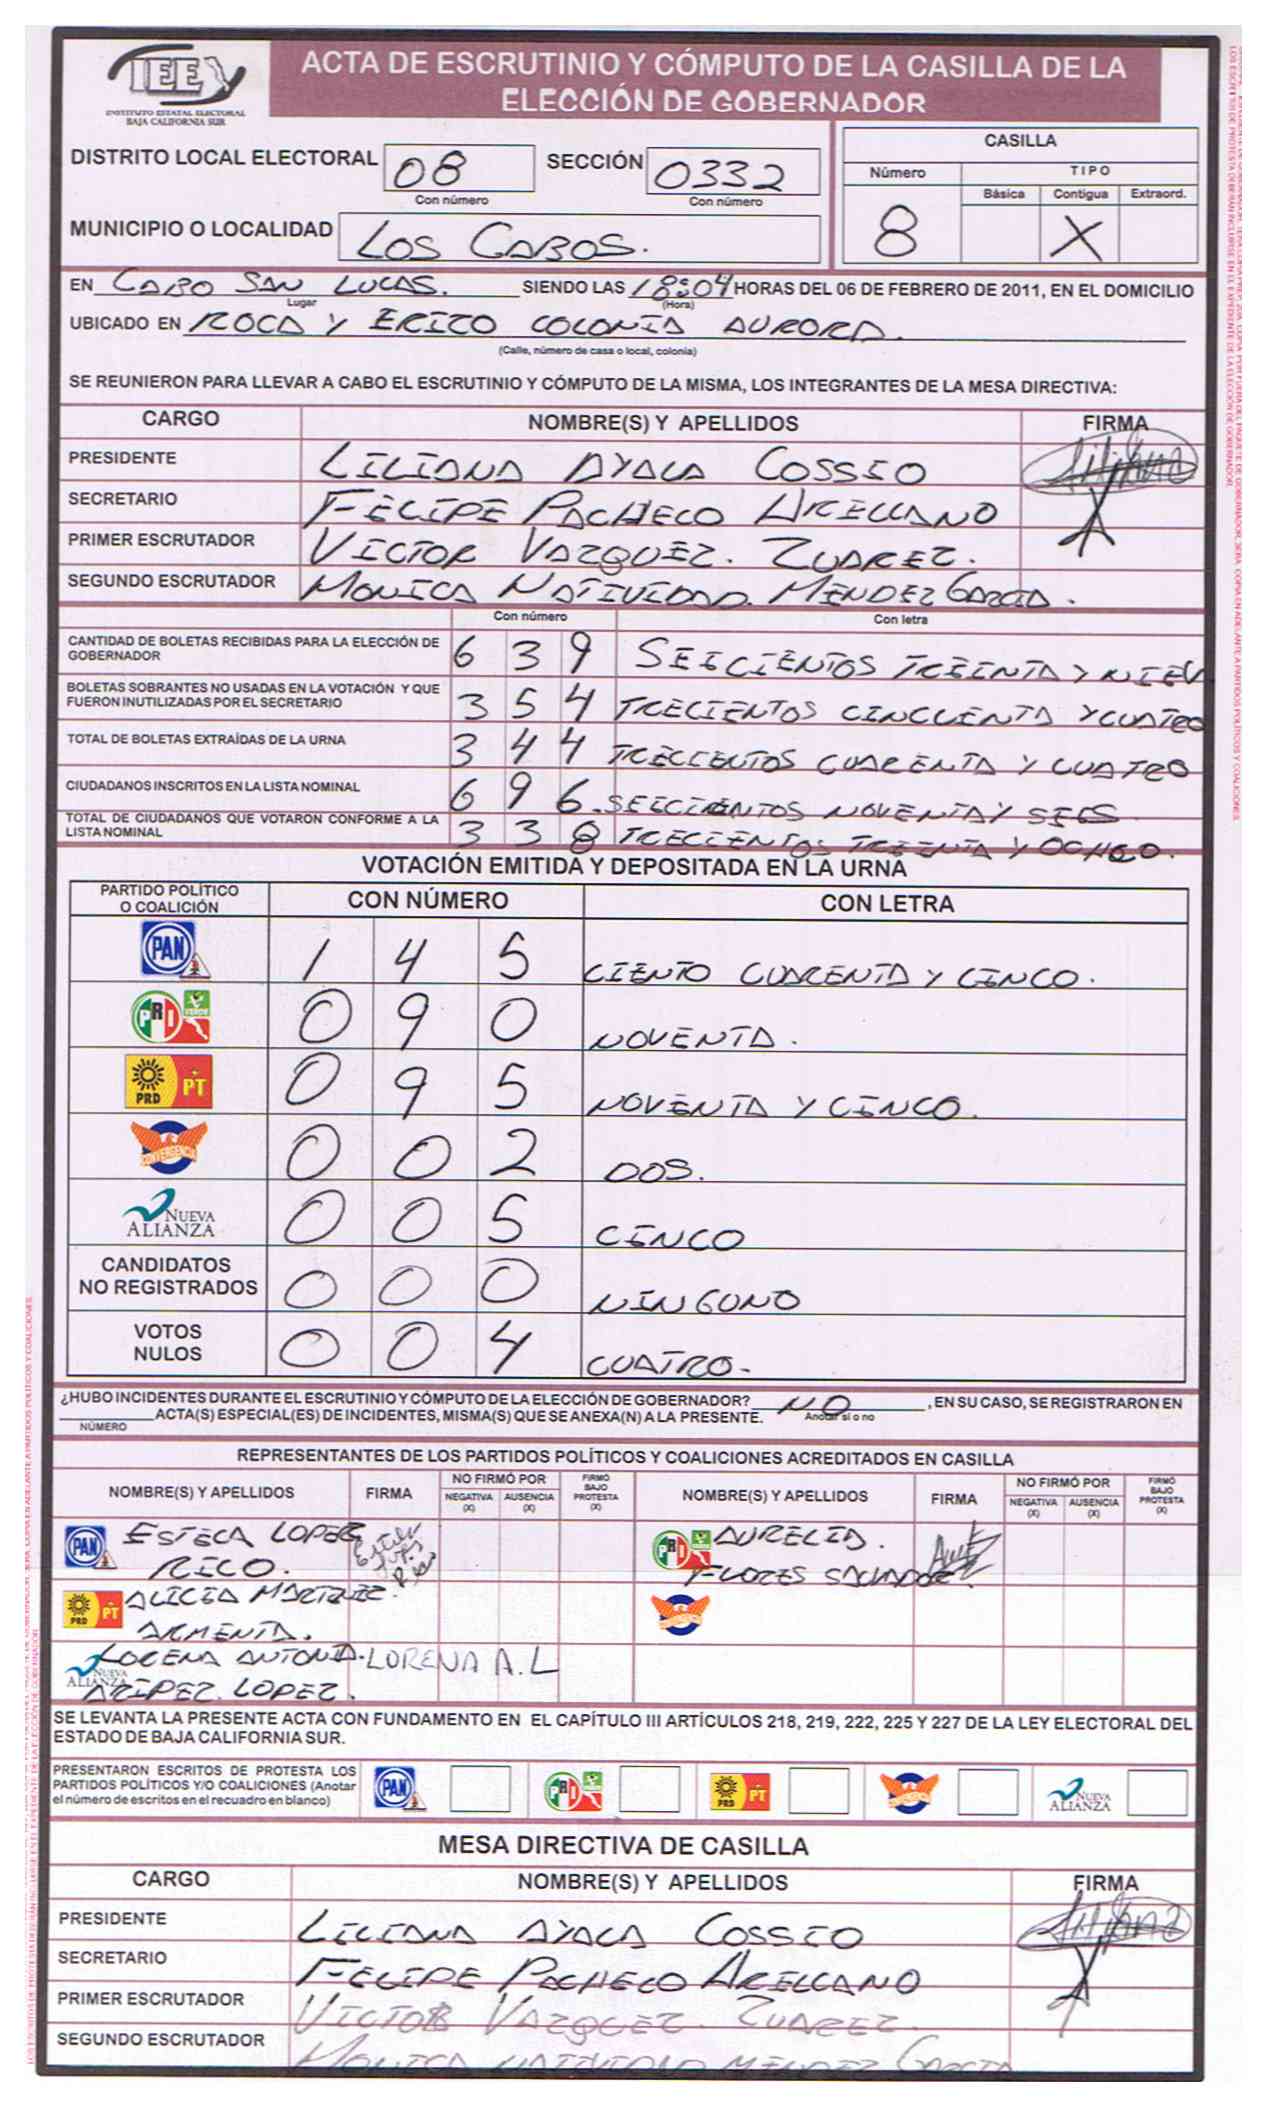 ACTA DE ESCRUTINIO Y CÓMPUTO DE LA CASILLA DE LA
ELECCIÓN DE GOBERNADOR
IEE
INSTITUTO ESTATAL ELECTORAL
BAJA CALIFORNIA SUR
DISTRITO LOCAL ELECTORAL 08 SECCIÓN 0332
Con número Con número
MUNICIPIO O LOCALIDAD LOS CABOS.
CASILLA
Número TIPO
Básica Contigua Extraord.
8 X
EN CABO SAN LUCAS. SIENDO LAS 18:04 HORAS DEL 06 DE FEBRERO DE 2011, EN EL DOMICILIO
Lugar (Hora)
UBICADO EN ROCA Y ERIZO COLONIA AURORA.
(Calle, número de casa o local, colonia)
SE REUNIERON PARA LLEVAR A CABO EL ESCRUTINIO Y CÓMPUTO DE LA MISMA, LOS INTEGRANTES DE LA MESA DIRECTIVA:
CARGO NOMBRE(S) Y APELLIDOS FIRMA
PRESIDENTE LILIANA AYALA COSSIO
SECRETARIO FELIPE PACHECO ARELLANO
PRIMER ESCRUTADOR VICTOR VAZQUEZ. ZUAREZ.
SEGUNDO ESCRUTADOR MONICA NATIVIDAD MENDEZ GARCIA.
Con número Con letra
CANTIDAD DE BOLETAS RECIBIDAS PARA LA ELECCIÓN DE
GOBERNADOR 6 3 9 SEICIENTOS TREINTA Y NIEV
BOLETAS SOBRANTES NO USADAS EN LA VOTACIÓN Y QUE
FUERON INUTILIZADAS POR EL SECRETARIO 3 5 4 TRECIENTOS CINCUENTA Y CUATRO
TOTAL DE BOLETAS EXTRAÍDAS DE LA URNA 3 4 4 TRECIENTOS CUARENTA Y CUATRO
CIUDADANOS INSCRITOS EN LA LISTA NOMINAL 6 9 6. SEICIENTOS NOVENTA Y SEIS
TOTAL DE CIUDADANOS QUE VOTARON CONFORME A LA
LISTA NOMINAL 3 3 8 TRECIENTOS TREINTA Y OCHO.
VOTACIÓN EMITIDA Y DEPOSITADA EN LA URNA
PARTIDO POLÍTICO
O COALICIÓN CON NÚMERO CON LETRA
PAN 1 4 5 CIENTO CUARENTA Y CINCO.
PRI VERDE 0 9 0 NOVENTA.
PRD PT 0 9 5 NOVENTA Y CINCO.
CONVERGENCIA 0 0 2 DOS.
NUEVA ALIANZA 0 0 5 CINCO
CANDIDATOS
NO REGISTRADOS 0 0 0 NINGUNO
VOTOS
NULOS 0 0 4 CUATRO.
¿HUBO INCIDENTES DURANTE EL ESCRUTINIO Y CÓMPUTO DE LA ELECCIÓN DE GOBERNADOR? NO , EN SU CASO, SE REGISTRARON EN
ACTA(S) ESPECIAL(ES) DE INCIDENTES, MISMA(S) QUE SE ANEXA(N) A LA PRESENTE. Anotar si o no
NÚMERO
REPRESENTANTES DE LOS PARTIDOS POLÍTICOS Y COALICIONES ACREDITADOS EN CASILLA
NOMBRE(S) Y APELLIDOS FIRMA NO FIRMÓ POR NEGATIVA (X) AUSENCIA (X) FIRMÓ BAJO PROTESTA (X) NOMBRE(S) Y APELLIDOS FIRMA NO FIRMÓ POR NEGATIVA (X) AUSENCIA (X) FIRMÓ BAJO PROTESTA (X)
PAN ESTELA LOPEZ PRI AURELIA.
RICO. FLORES SALVADOR.
PRD PT ALICIA MARTINEZ.
ARMENTA.
LORENA ANTONIA. LORENA A.L
NUEVA ALIANZA ARIPEZ LOPEZ.
SE LEVANTA LA PRESENTE ACTA CON FUNDAMENTO EN EL CAPÍTULO III ARTÍCULOS 218, 219, 222, 225 Y 227 DE LA LEY ELECTORAL DEL
ESTADO DE BAJA CALIFORNIA SUR.
PRESENTARON ESCRITOS DE PROTESTA LOS
PARTIDOS POLÍTICOS Y/O COALICIONES (Anotar
el número de escritos en el recuadro en blanco)
PAN PRI PRD PT NUEVA ALIANZA
MESA DIRECTIVA DE CASILLA
CARGO NOMBRE(S) Y APELLIDOS FIRMA
PRESIDENTE LILIANA AYALA COSSIO
SECRETARIO FELIPE PACHECO ARELLANO
PRIMER ESCRUTADOR VICTOR VAZQUEZ. ZUAREZ.
SEGUNDO ESCRUTADOR MONICA NATIVIDAD MENDEZ GARCIA